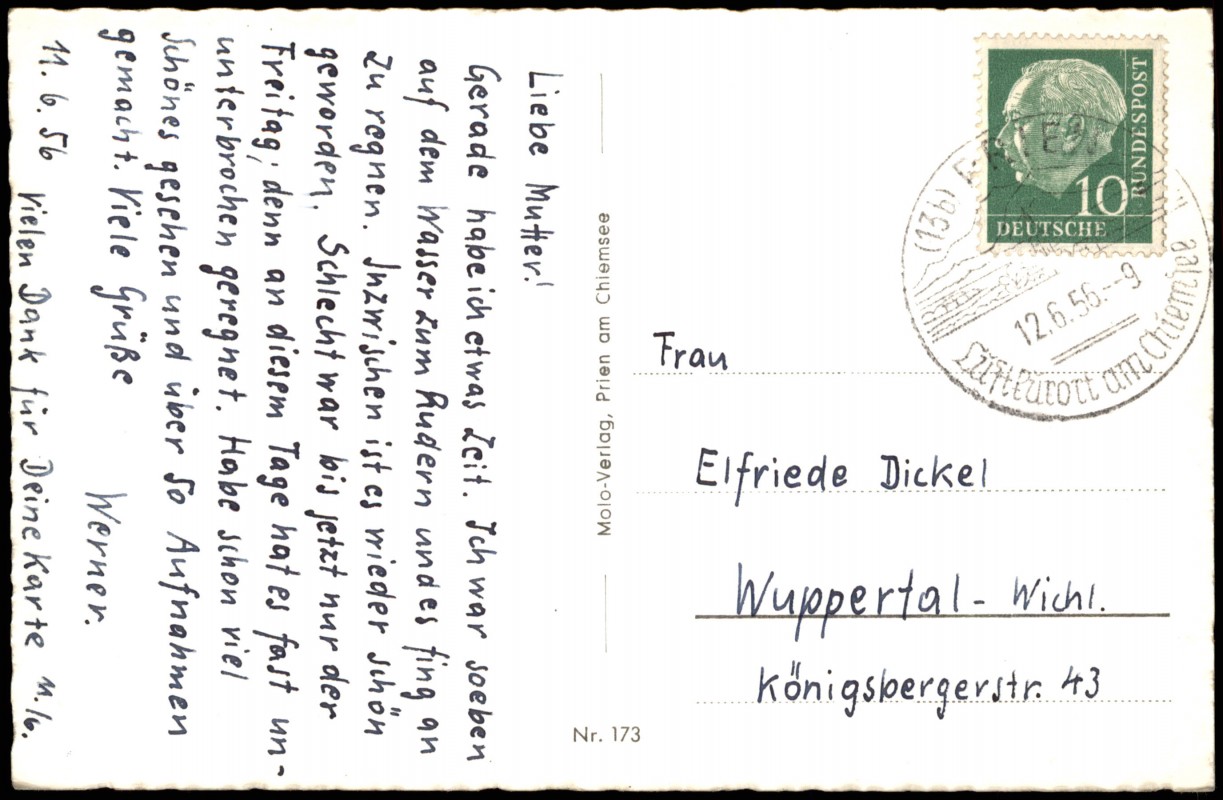 Liebe Mutter!
Gerade habe ich etwas Zeit. Ich war soeben
auf dem Wasser zum Rudern und es fing an
zu regnen. Inzwischen ist es wieder schön
geworden. Schlecht war bis jetzt nur der
Freitag; denn an diesem Tage hat es fast un-
unterbrochen geregnet. Habe schon viel
schönes gesehen und über 50 Aufnahmen
gemacht. Viele Grüße
Werner.
11.6.56 Vielen Dank für Deine Karte
Molo-Verlag, Prien am Chiemsee
Nr. 173
DEUTSCHE
BUNDESPOST
10
(13b)
12.6.56.--9
Luftkurort am Chiemsee
Frau
Elfriede Dickel
Wuppertal - Wichl.
Königsbergerstr. 43